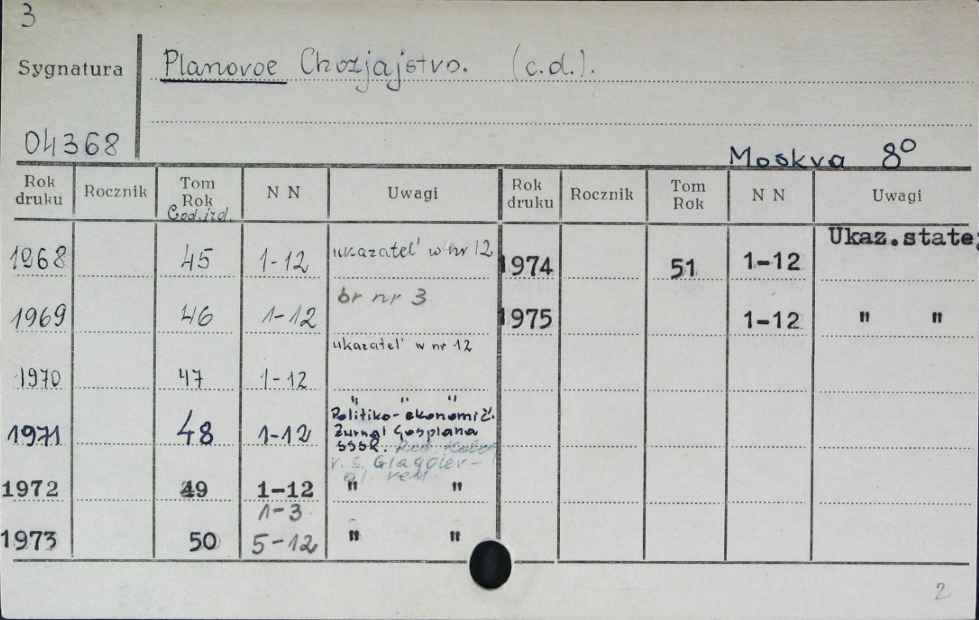 3
Sygnatura Planovoe Chozjajstvo. (c.d.).
04368
Moskva 8°
Rok druku Rocznik Tom Rok God.izd. N N Uwagi Rok druku Rocznik Tom Rok N N Uwagi
Ukaz.state
1968 45 1-12 ukazatel' w nr 12 1974 51 1-12
br nr 3
1969 46 1-12 1975 1-12 " "
ukazatel' w nr 12
1970 47 1-12
" " "
Politiko-ekonomič.
1971 48 1-12 Žurnal Gosplana
SSSR.
1972 49 1-12 " "
1-3
1973 50 5-12 " "
2